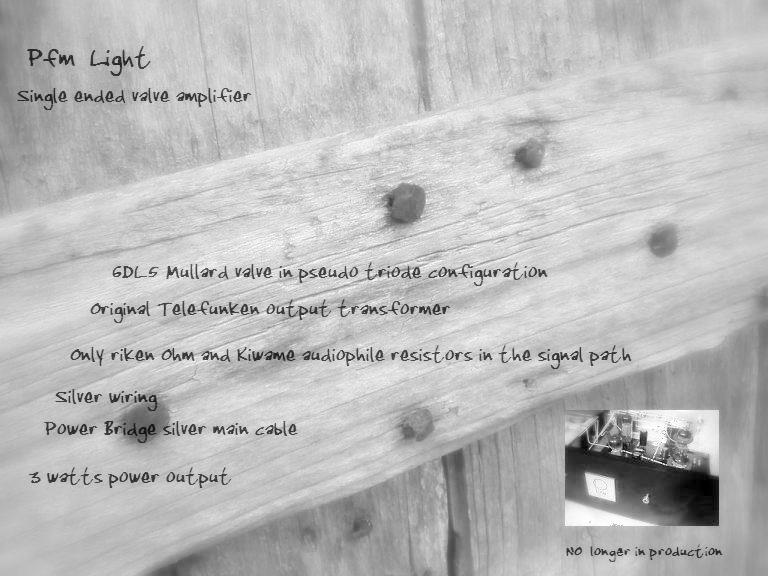 Pfm Light
Single ended valve amplifier
6DL5 Mullard valve in pseudo triode configuration
Original Telefunken output transformer
Only riken Ohm and Kiwame audiophile resistors in the signal path
Silver wiring
Power Bridge silver main cable
3 watts power output
NO longer in production